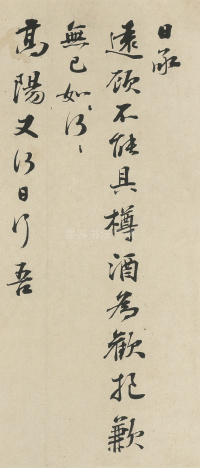 日承
遠顧不能具樽酒為歡抱歉
無已如何如何
高陽又行日行吾